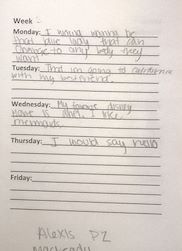 Week -
Monday: I would wanna be
that blue lady that can
change to any body they
want
Tuesday: That im going to california
with my bestfriend.
Wednesday: My favorite disney
movie is ariel. I like
mermaids
Thursday: I would say hello
Friday:
Alexis PZ